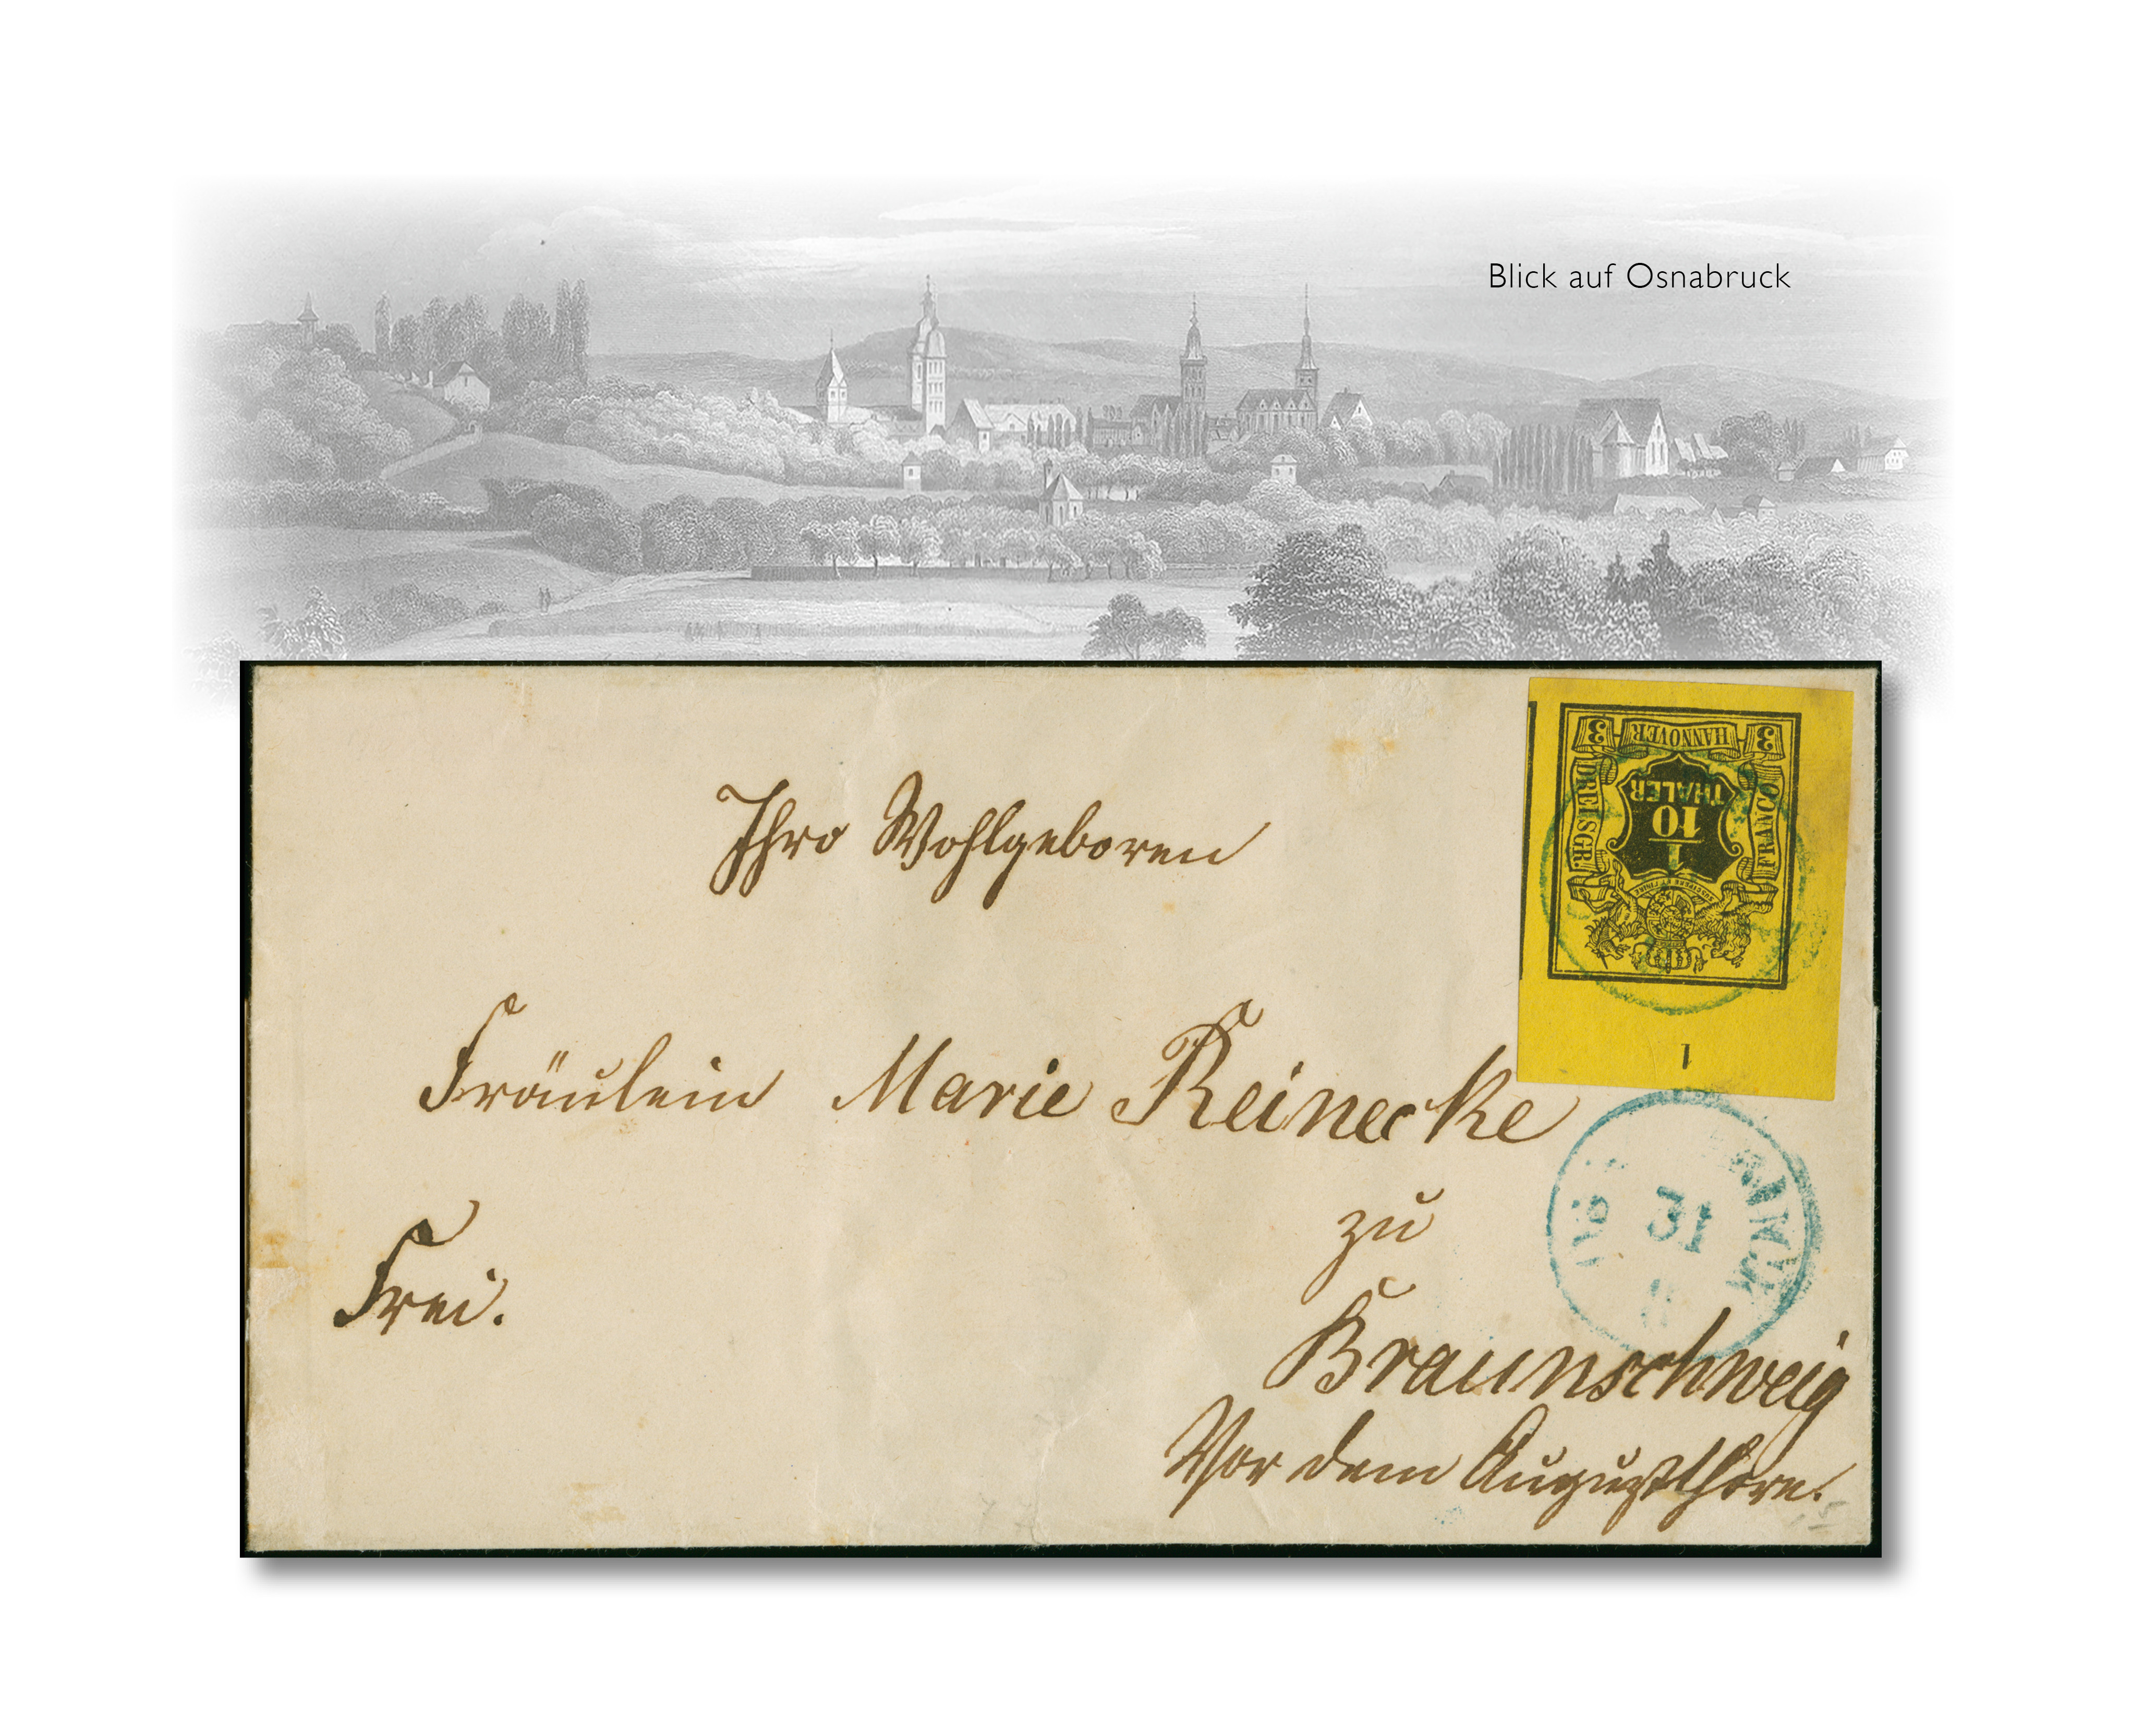 Blick auf Osnabruck
3 HANNOVER 3
DREI SGR.
FRANCO
1
10
THALER
1
Ihro Wohlgeboren
Fräulein Marie Reinecke
zu
Frei.
31
Braunschweig
Vor dem Augustthore.